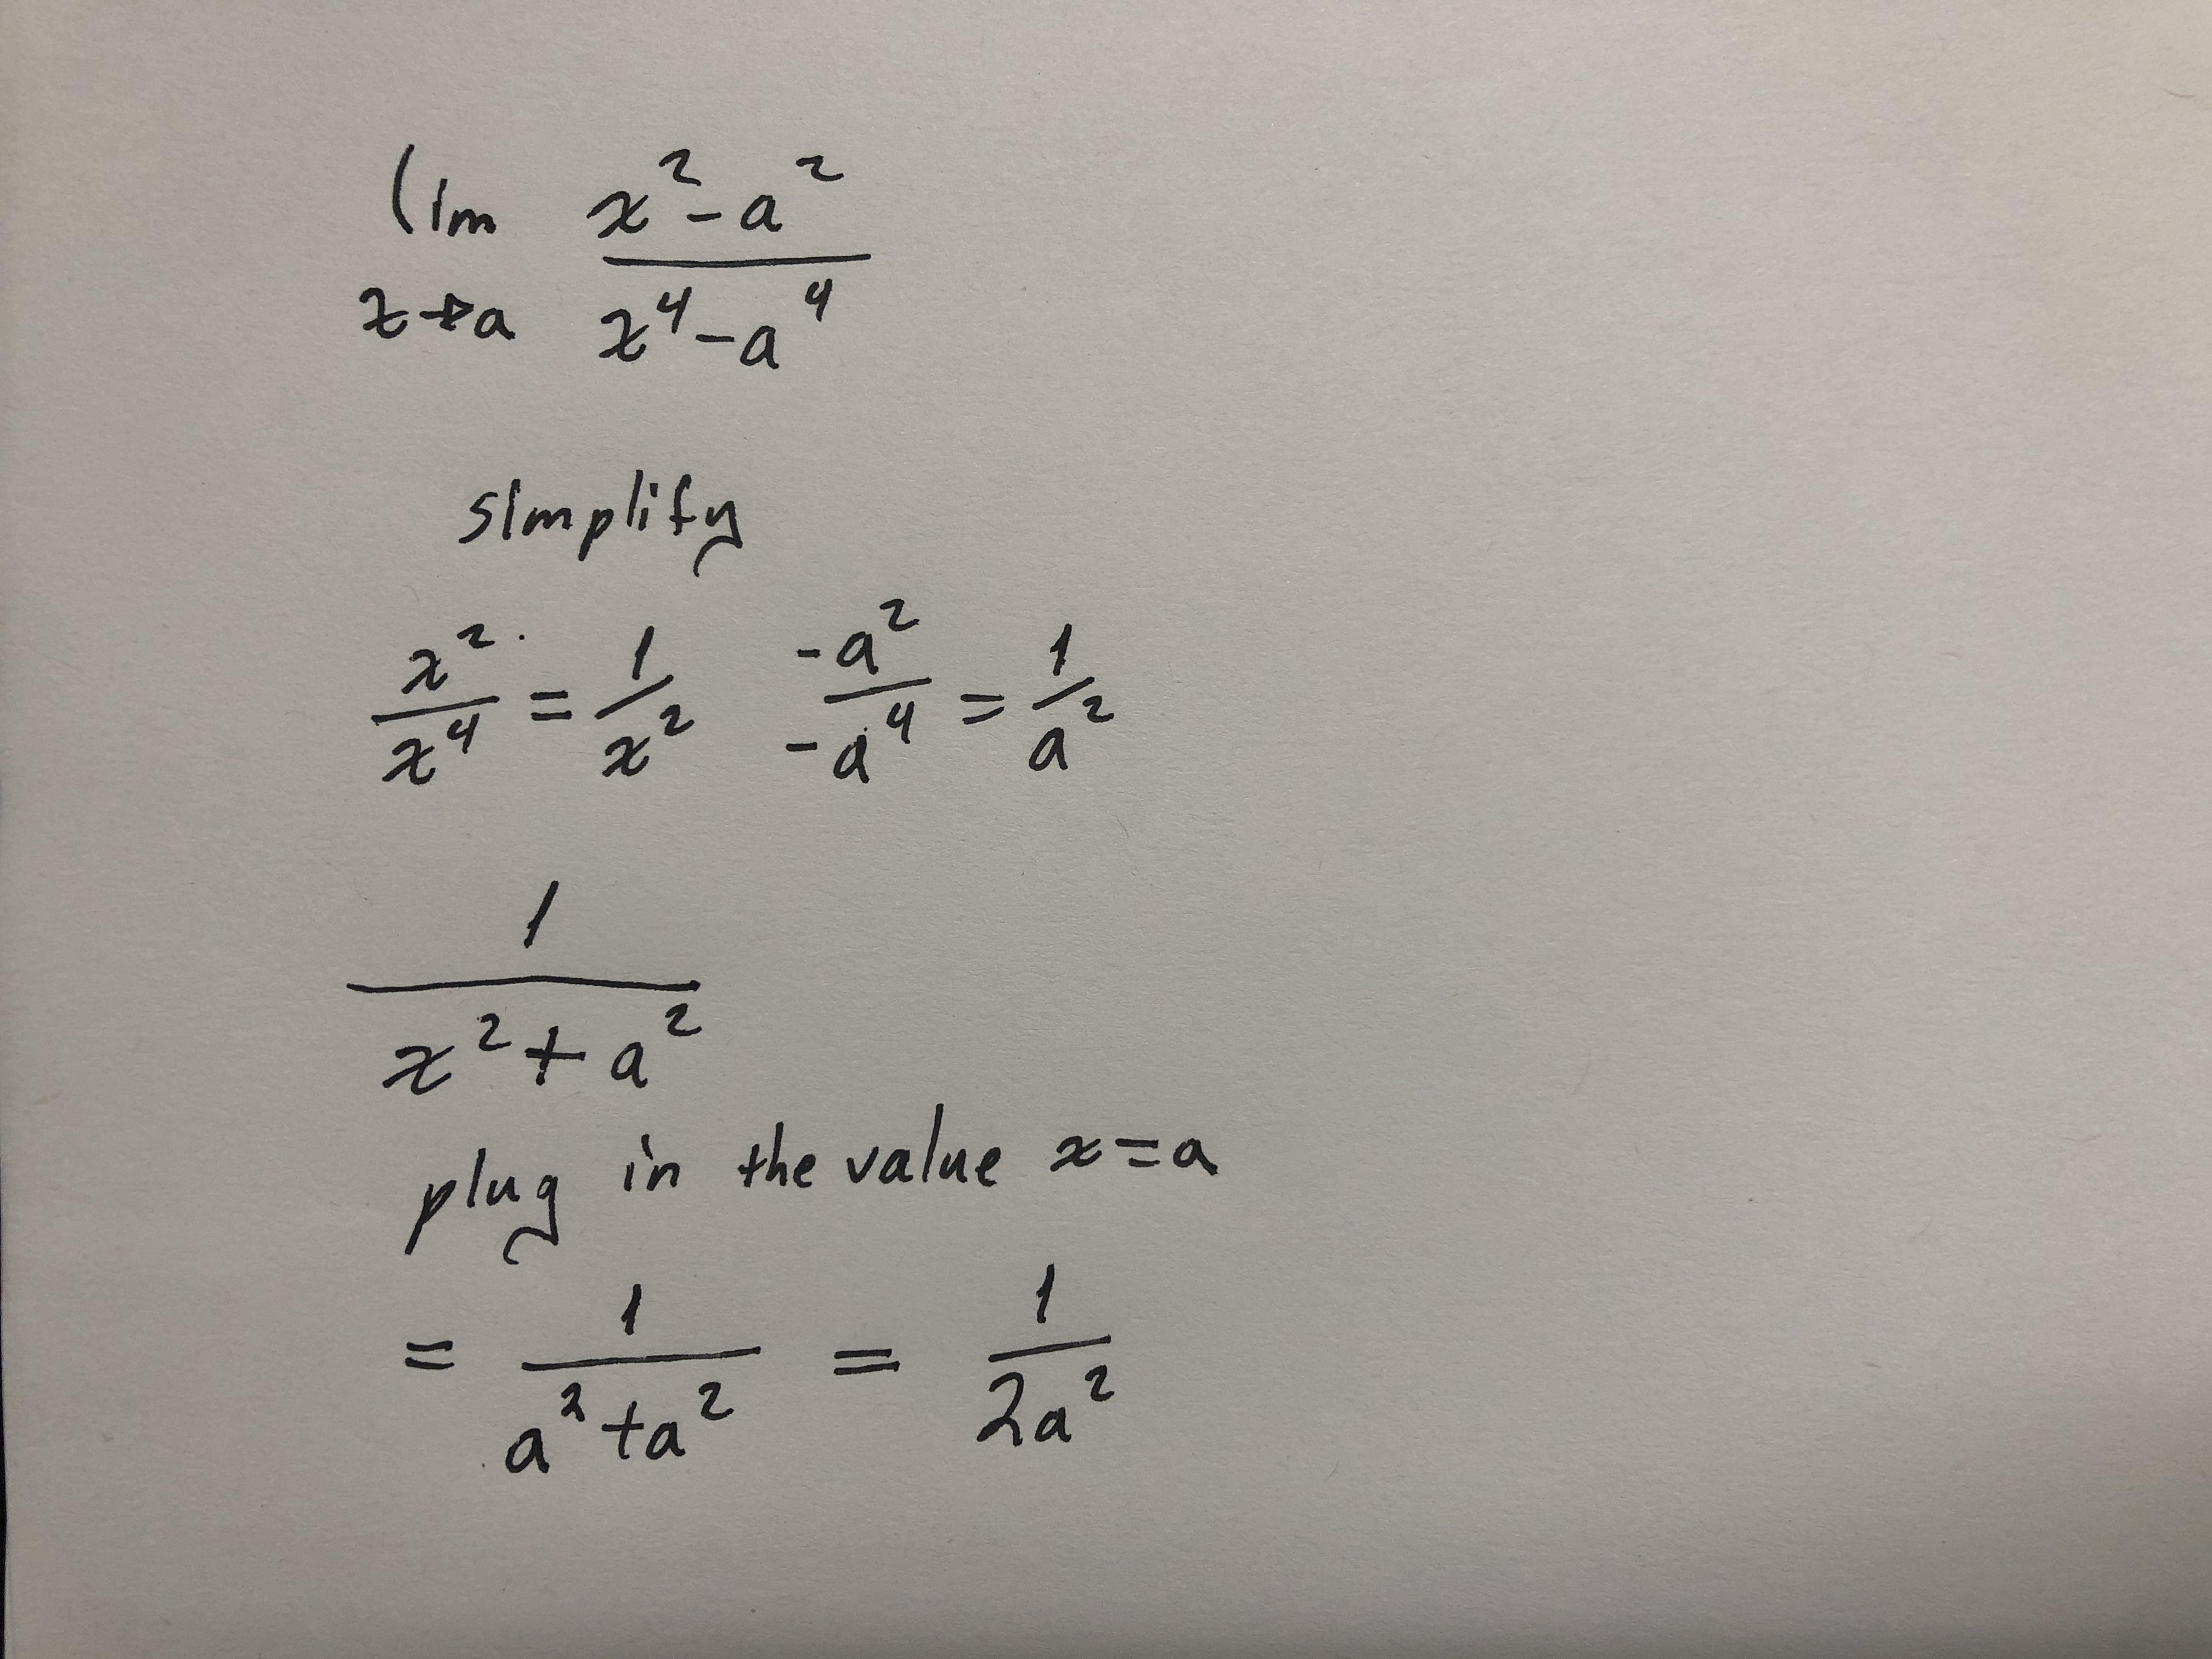 lim x²-a² / x⁴-a⁴
x→a
simplify
x²/x⁴ = 1/x² -a²/-a⁴ = 1/a²
1/(x²+a²)
plug in the value x=a
= 1/(a²+a²) = 1/2a²